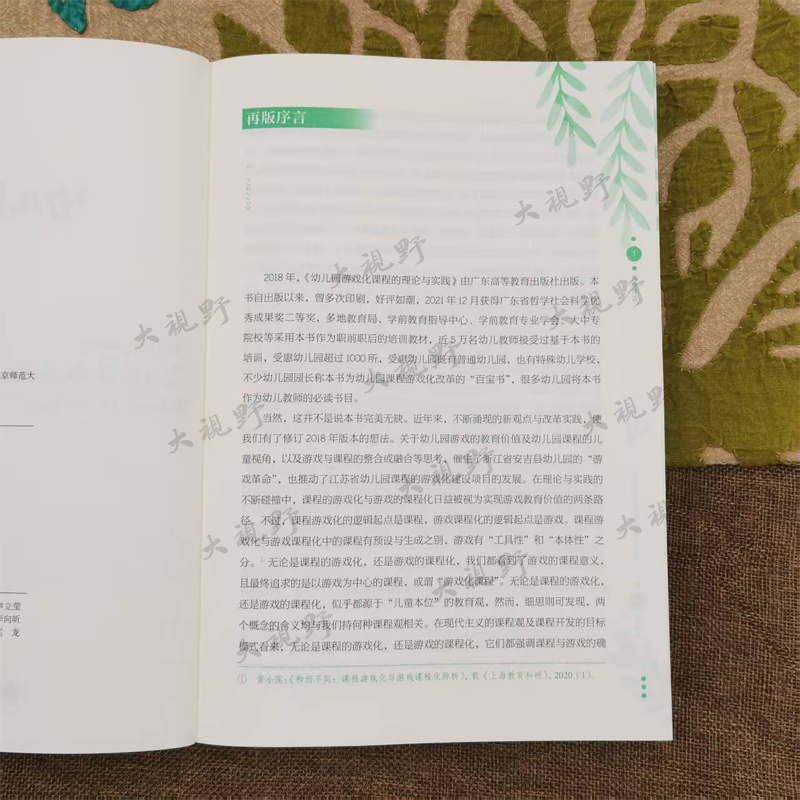 京师范大
立莹
向昕
龙
再版序言
1
2018 年，《幼儿园游戏化课程的理论与实践》由广东高等教育出版社出版。本
书自出版以来，曾多次印刷，好评如潮，2021 年 12 月获得广东省哲学社会科学优
秀成果奖二等奖，多地教育局、学前教育指导中心、学前教育专业学会、大中专
院校等采用本书作为职前职后的培训教材，近 5 万名幼儿教师接受过基于本书的
培训，受惠幼儿园超过 1000 所，受惠幼儿园既有普通幼儿园，也有特殊幼儿学校，
不少幼儿园园长称本书为幼儿园课程游戏化改革的“百宝书”，很多幼儿园将本书
作为幼儿教师的必读书目。
当然，这并不是说本书完美无缺。近年来，不断涌现的新观点与改革实践，使
我们有了修订 2018 年版本的想法。关于幼儿园游戏的教育价值及幼儿园课程的儿
童视角，以及游戏与课程的整合或融合等思考，催生了浙江省安吉县幼儿园的“游
戏革命”，也推动了江苏省幼儿园课程的游戏化建设项目的发展。在理论与实践的
不断碰撞中，课程的游戏化与游戏的课程化日益被视为实现游戏教育价值的两条路
径。不过，课程游戏化的逻辑起点是课程，游戏课程化的逻辑起点是游戏。课程游
戏化与游戏课程化中的课程有预设与生成之别，游戏有“工具性”和“本体性”之
分。无论是课程的游戏化，还是游戏的课程化，我们都看到了游戏的课程意义，
且最终追求的是以游戏为中心的课程，或谓“游戏化课程”。无论是课程的游戏化，
还是游戏的课程化，似乎都源于“儿童本位”的教育观，然而，细思则可发现，两
个概念的含义均与我们持何种课程观相关。在现代主义的课程观及课程开发的目标
模式看来，无论是课程的游戏化，还是游戏的课程化，它们都强调课程与游戏的确
① 黄小莲：《和而不同：课程游戏化与游戏课程化辨析》，载《上海教育科研》，2020（1）。
大視野
大視野
大視野
大視野
大視野
大視野
大視野
大視野
大視野
大視野
大視野